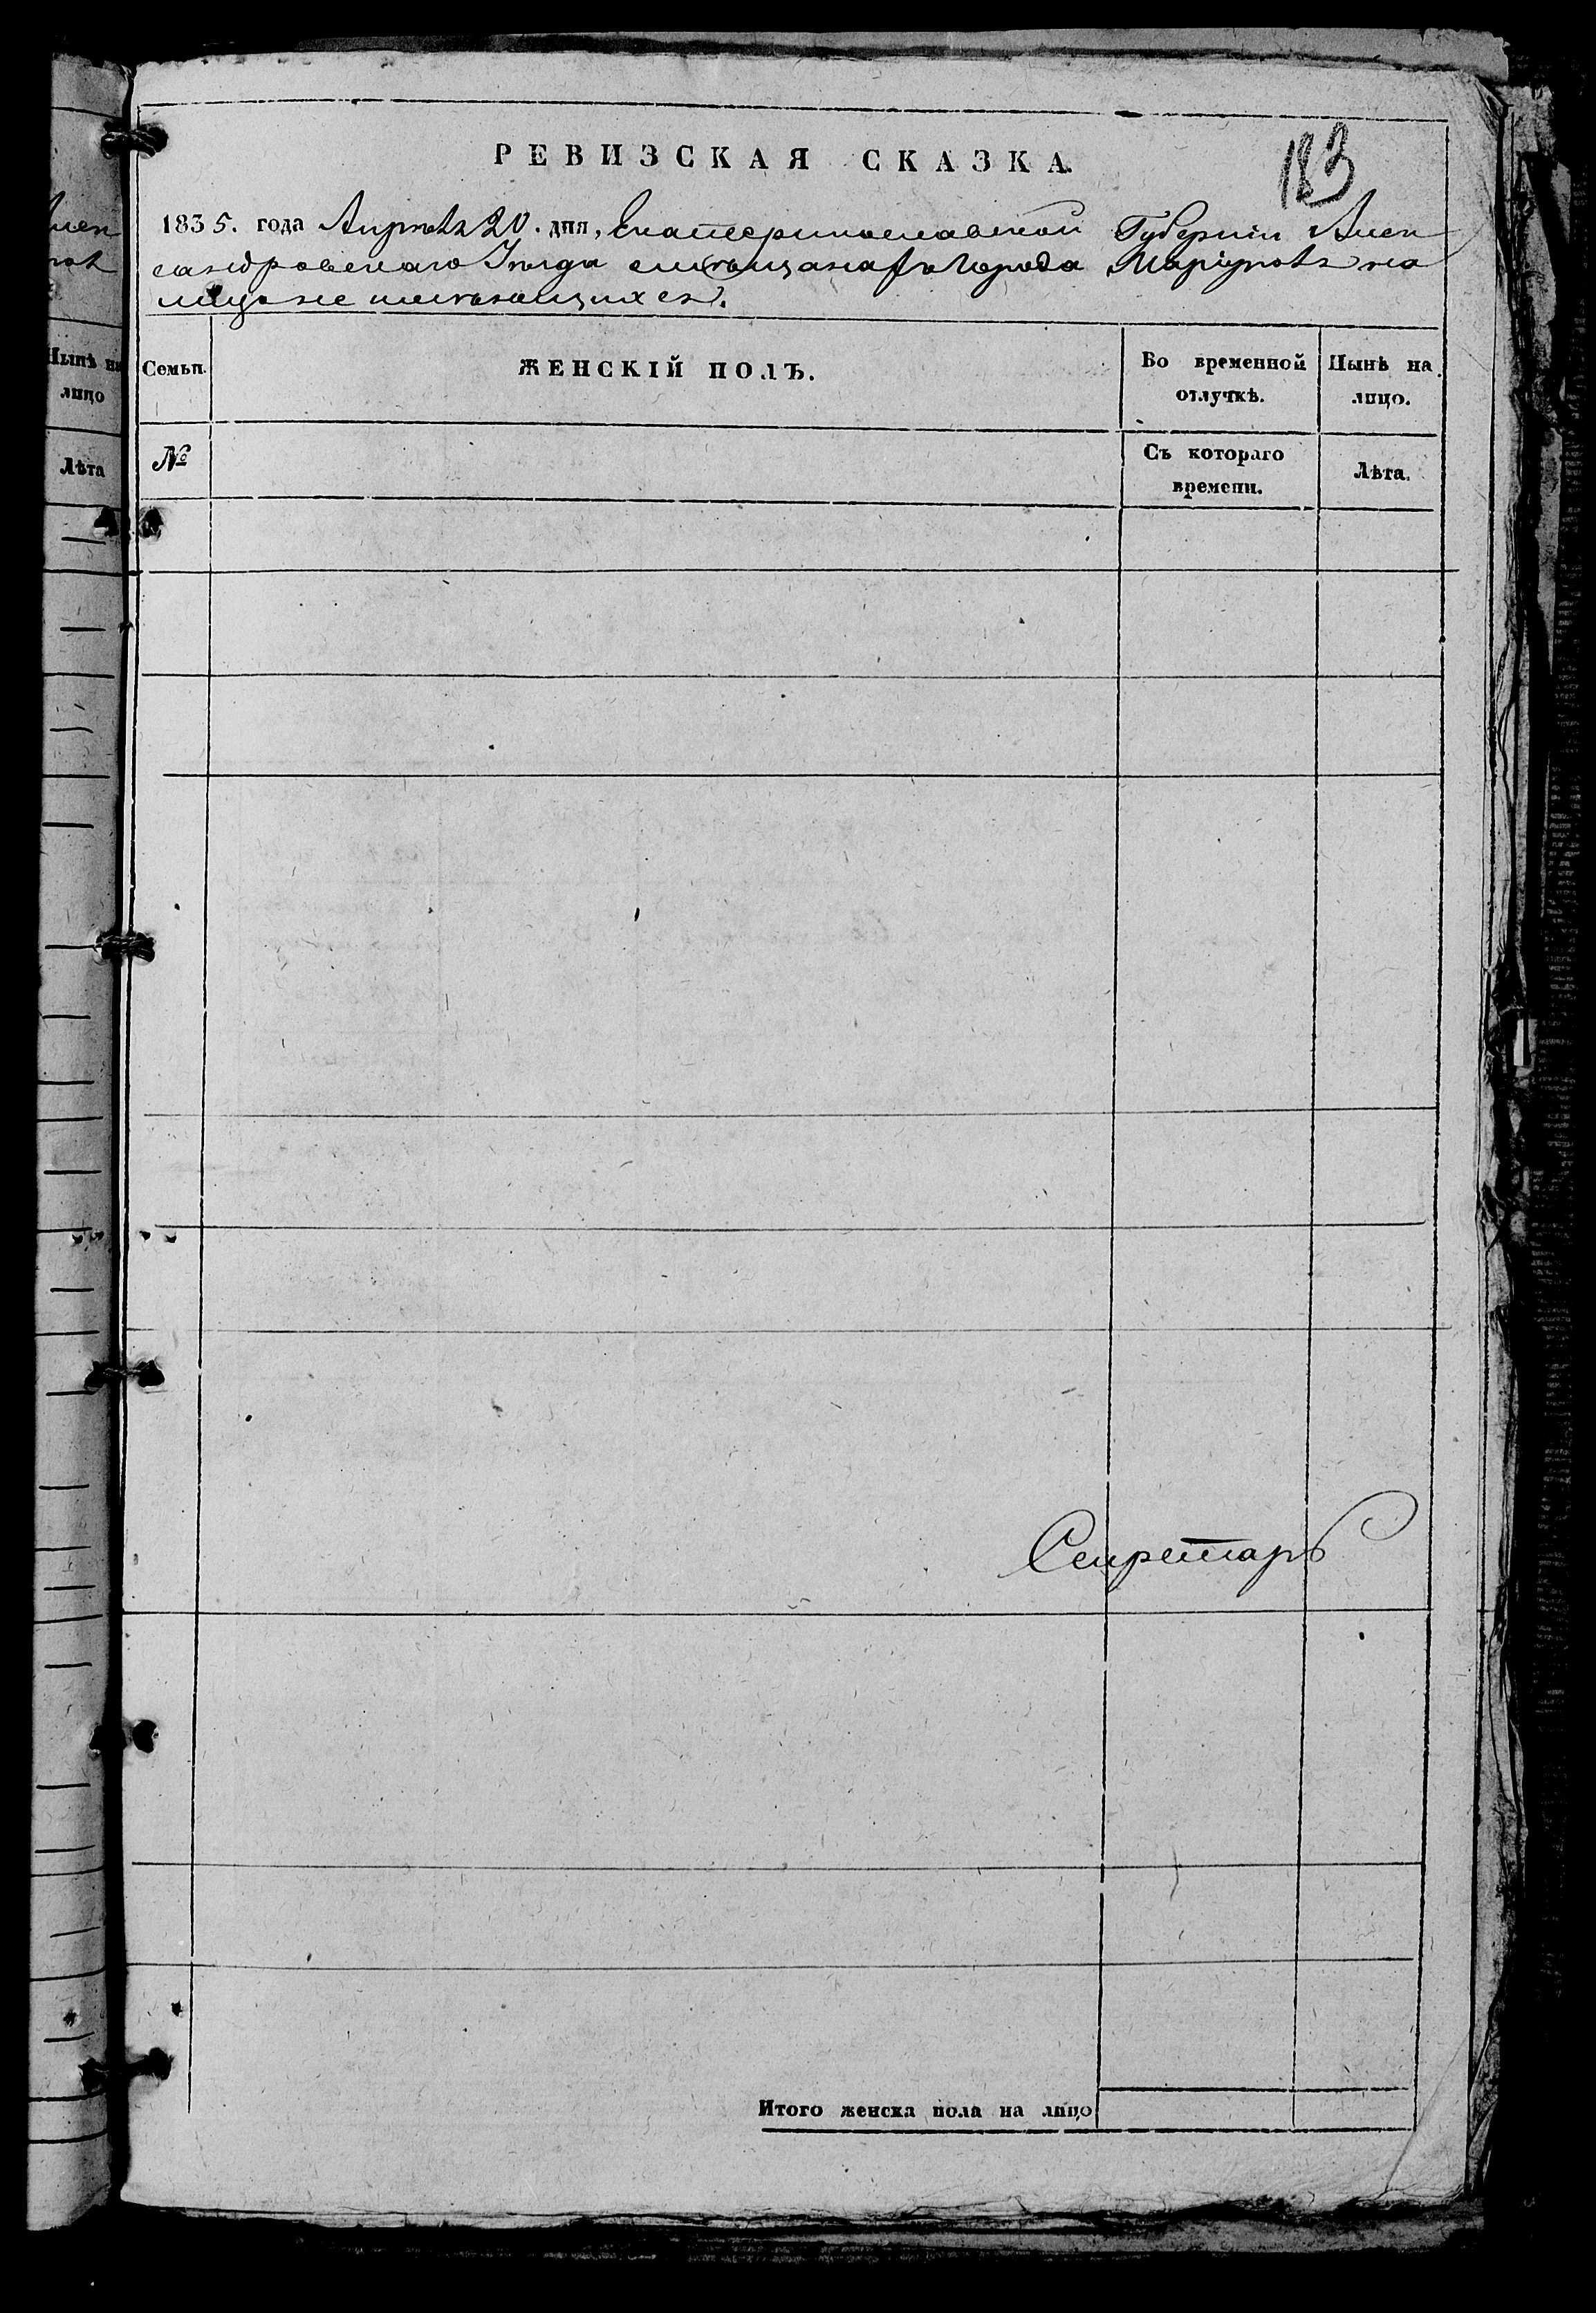 183
РЕВИЗСКАЯ СКАЗКА.
1835. года Апреля 20. дня, Екатеринославской Губернiи Алек
сандровскаго Уѣзда о мѣщанахъ города Марiуполя на
лицо не имѣющихся.
Семьи. ЖЕНСКIЙ ПОЛЪ. Во временной отлучкѣ. Нынѣ на лицо.
№ Съ котораго времени. Лѣта.
Секретарь
Итого женска пола на лицо
Нынѣ на
лицо
Лѣта